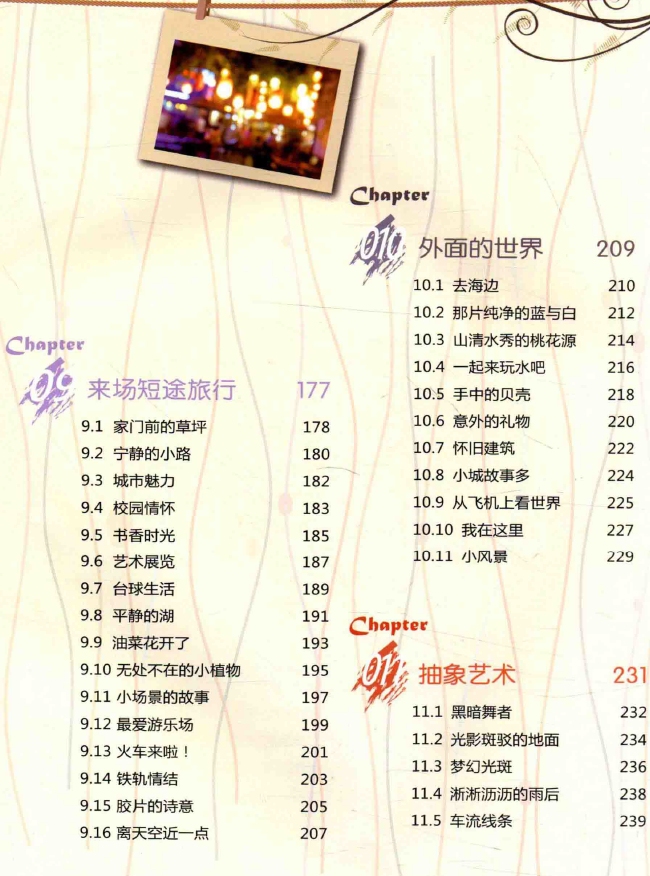 Chapter
09 来场短途旅行 177
9.1 家门前的草坪 178
9.2 宁静的小路 180
9.3 城市魅力 182
9.4 校园情怀 183
9.5 书香时光 185
9.6 艺术展览 187
9.7 台球生活 189
9.8 平静的湖 191
9.9 油菜花开了 193
9.10 无处不在的小植物 195
9.11 小场景的故事 197
9.12 最爱游乐场 199
9.13 火车来啦！ 201
9.14 铁轨情结 203
9.15 胶片的诗意 205
9.16 离天空近一点 207
Chapter
010 外面的世界 209
10.1 去海边 210
10.2 那片纯净的蓝与白 212
10.3 山清水秀的桃花源 214
10.4 一起来玩水吧 216
10.5 手中的贝壳 218
10.6 意外的礼物 220
10.7 怀旧建筑 222
10.8 小城故事多 224
10.9 从飞机上看世界 225
10.10 我在这里 227
10.11 小风景 229
Chapter
011 抽象艺术 231
11.1 黑暗舞者 232
11.2 光影斑驳的地面 234
11.3 梦幻光斑 236
11.4 淅淅沥沥的雨后 238
11.5 车流线条 239